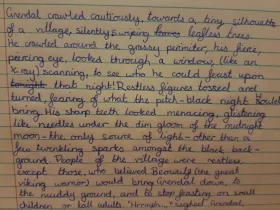 Grendal crawled cautiously, towards a tiny silhouette
of a village, silently swiping leafless trees.
He crawled around the grassy perimiter, his fierce,
piercing eye, looked through a window, (like an
X-ray) scanning, to see who he could feast upon
that night! Restless figures tossed and
turned, fearing of what the pitch-black night would
bring. His sharp teeth looked menacing, glistening
like needles under the dim gloom of the midnight
moon-the only source of light-other than a
few twinkling sparks amongst the black back-
ground. People of the village were restless
except those, who believed Beawulf (the great
viking warrior) would bring Grendal down, to
the muddy ground, and to stop feasting on small
children or tall adults. "Hmmph..." sighed Grendal,